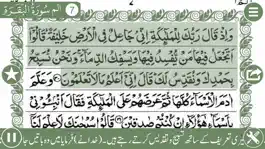 7
الم سورة البقرة
2
وَاِذْ قَالَ رَبُّكَ لِلْمَلٰٓئِكَةِ اِنِّىْ جَاعِلٌ فِى الْاَرْضِ خَلِيْفَةً ؕ قَالُوْٓا
اَتَجْعَلُ فِيْهَا مَنْ يُّفْسِدُ فِيْهَا وَيَسْفِكُ الدِّمَآءَ ۚ وَنَحْنُ نُسَبِّحُ
بِحَمْدِكَ وَنُقَدِّسُ لَكَ ؕ قَالَ اِنِّىْٓ اَعْلَمُ مَا لَا تَعْلَمُوْنَ وَعَلَّمَ
اٰدَمَ الْاَسْمَآءَ كُلَّهَا ثُمَّ عَرَضَهُمْ عَلَى الْمَلٰٓئِكَةِ ۙ فَقَالَ اَنْۢبِـُٔوْنِىْ
بِاَسْمَآءِ هٰٓؤُلَآءِ اِنْ كُنْتُمْ صٰدِقِيْنَ قَالُوْا سُبْحٰنَكَ لَا عِلْمَ لَنَآ
تیری تعریف کے ساتھ تسبیح و تقدیس کرتے رہتے ہیں۔ (خدا نے) فرمایا میں وہ باتیں